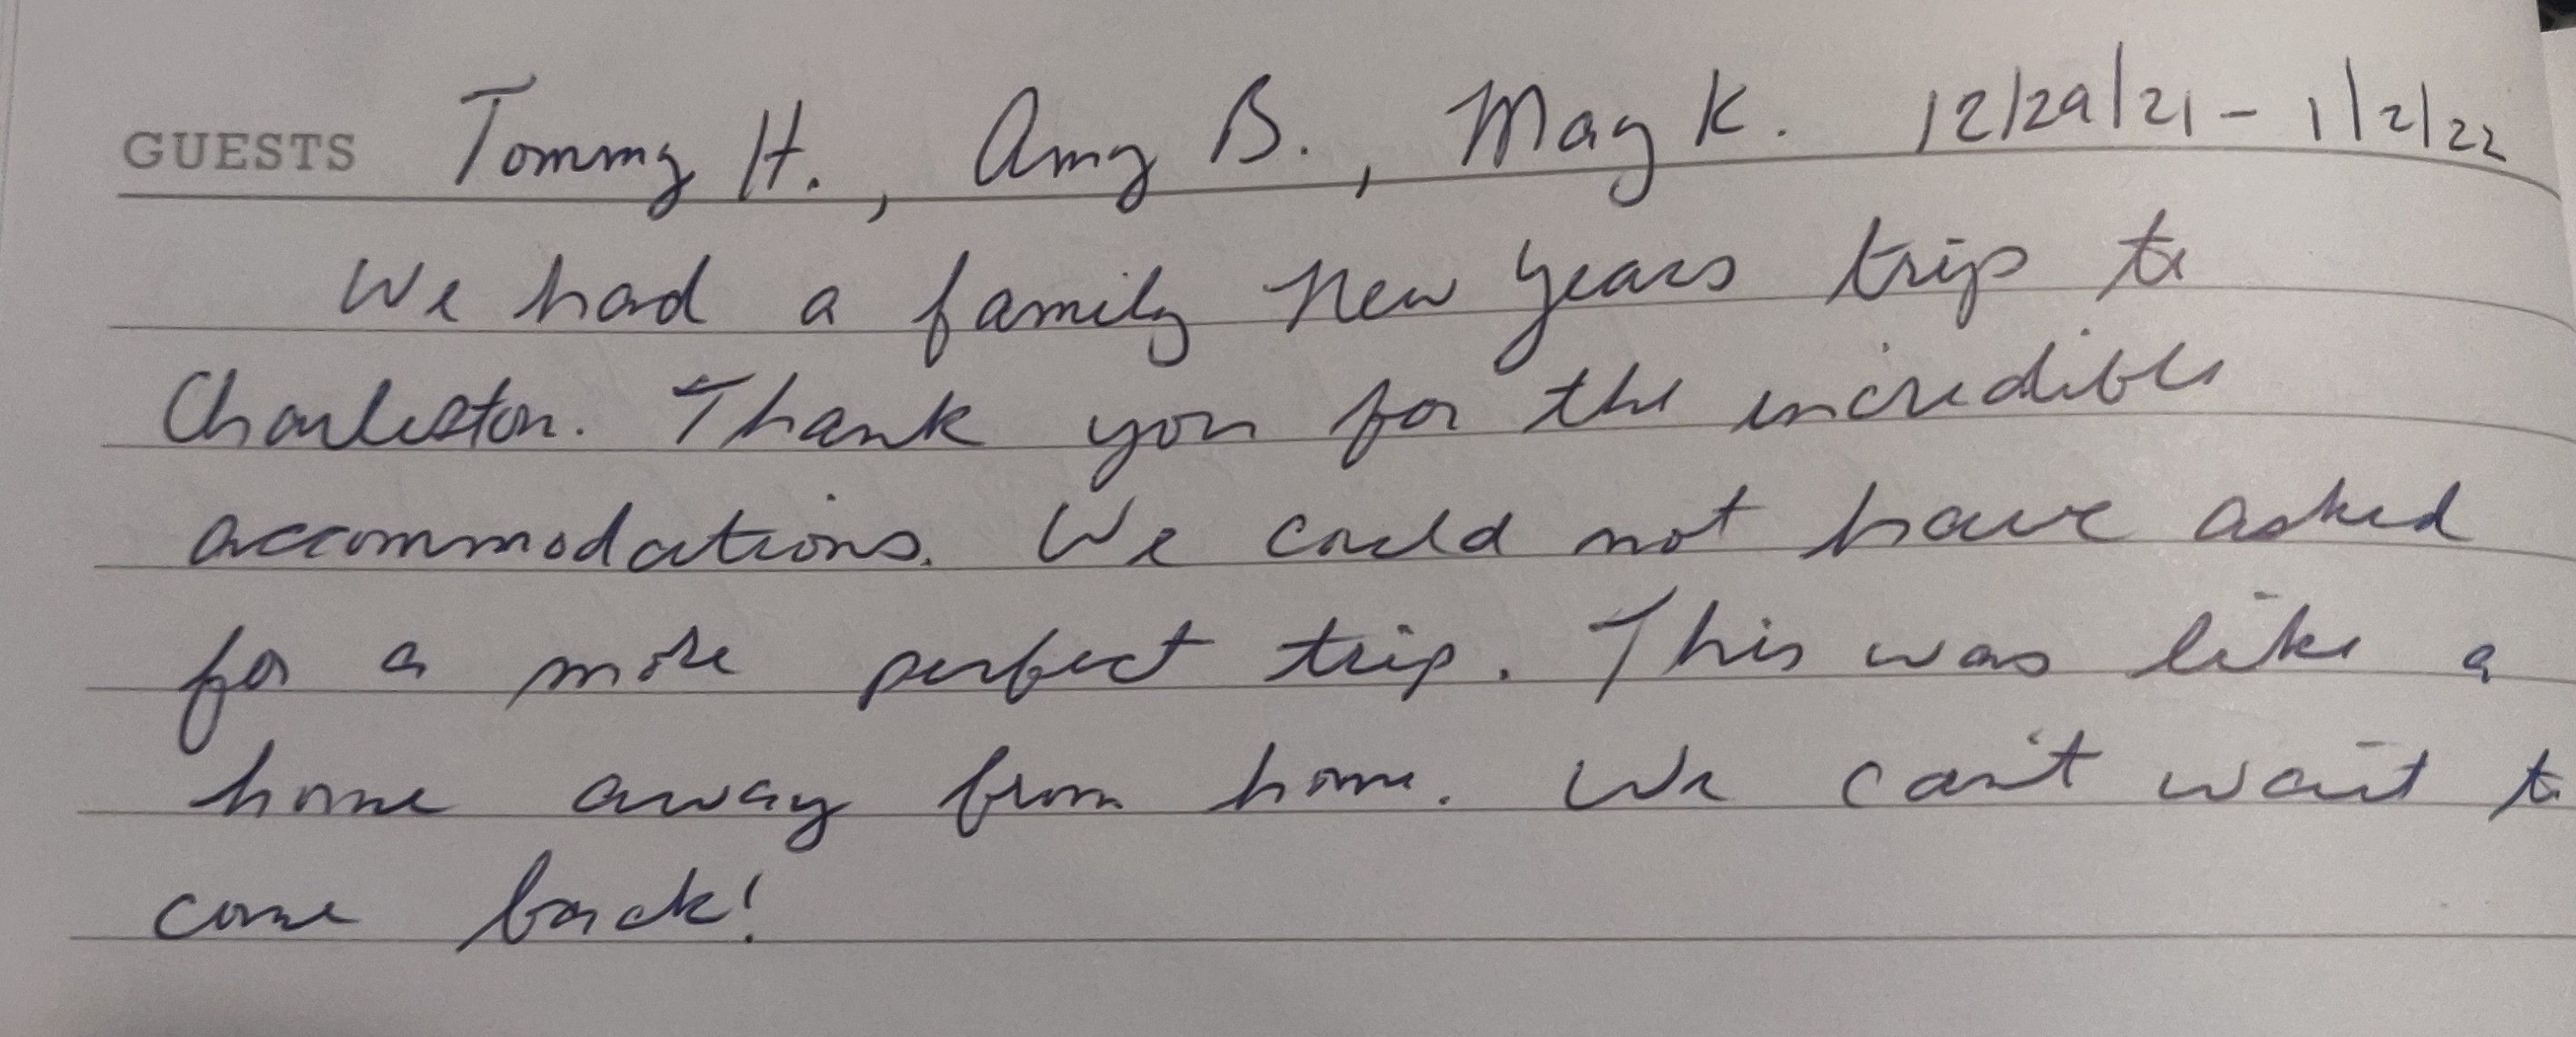 GUESTS Tommy H., Amy B., May K. 12/29/21 - 1/2/22
We had a family New Years trip to
Charleston. Thank you for the incredible
accommodations. We could not have asked
for a more perfect trip. This was like a
home away from home. We can't wait to
come back!